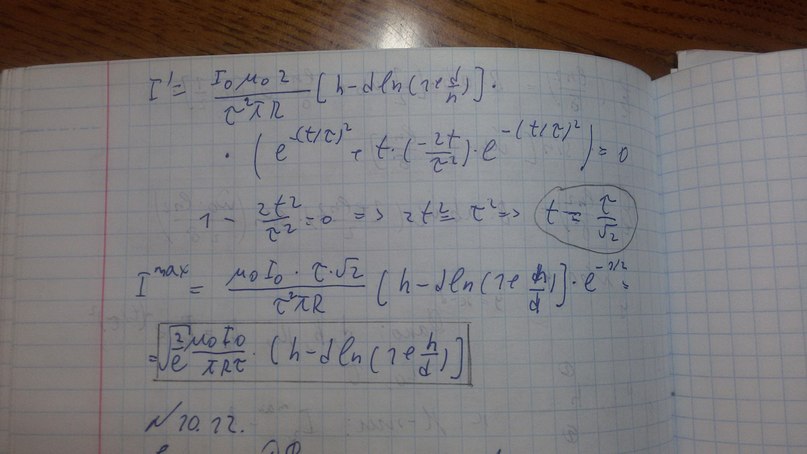 I' = I₀μ₀2 / τ²πR [h - d ln(1+e d/h)] ·
· (e^{-(t/τ)²} + t·(-2t/τ²)·e^{-(t/τ)²}) = 0
1 - 2t²/τ² = 0 => 2t² = τ² => t = τ/√2
I^{max} = μ₀I₀·τ·√2 / τ²πR [h - d ln(1+e h/d)]·e^{-1/2} =
= √(2/e) μ₀I₀/πRτ · [h - d ln(1+e h/d)]
№10.12.